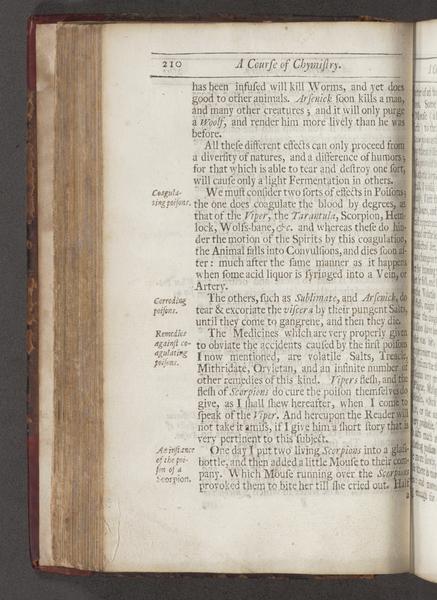 210 A Courſe of Chymiſtry.
has been infuſed will kill Worms, and yet does
good to other animals. Arſenick ſoon kills a man,
and many other creatures; and it will only purge
a Woolf, and render him more lively than he was
before.
All theſe different effects can only proceed from
a diverſity of natures, and a difference of humors;
for that which is able to tear and deſtroy one ſort,
will cauſe only a light Fermentation in others.
Coagula-
ting poiſons.
We muſt conſider two ſorts of effects in Poiſons;
the one does coagulate the blood by degrees, as
that of the Viper, the Tarantula, Scorpion, Hem-
lock, Wolfs-bane, &c. and whereas theſe do hin-
der the motion of the Spirits by this coagulation,
the Animal falls into Convulſions, and dies ſoon af-
ter: much after the ſame manner as it happens
when ſome acid liquor is ſyringed into a Vein, or
Artery.
Corroding
poiſons.
The others, ſuch as Sublimate, and Arſenick, do
tear & excoriate the viſcera by their pungent Salts,
until they come to gangrene, and then they die.
Remedies
againſt co-
agulating
poiſons.
The Medicines which are very properly given
to obviate the accidents cauſed by the firſt poiſons
I now mentioned, are volatile Salts, Treacle,
Mithridate, Orvietan, and an infinite number of
other remedies of this kind. Vipers fleſh, and the
fleſh of Scorpions do cure the poiſon themſelves do
give, as I ſhall ſhew hereafter, when I come to
ſpeak of the Viper. And hereupon the Reader will
not take it amiſs, if I give him a ſhort ſtory that is
very pertinent to this ſubject.
An inſtance
of the poi-
ſon of a
Scorpion.
One day I put two living Scorpions into a glaſs-
bottle, and then added a little Mouſe to their com-
pany. Which Mouſe running over the Scorpions
provoked them to bite her till ſhe cried out. Half
a